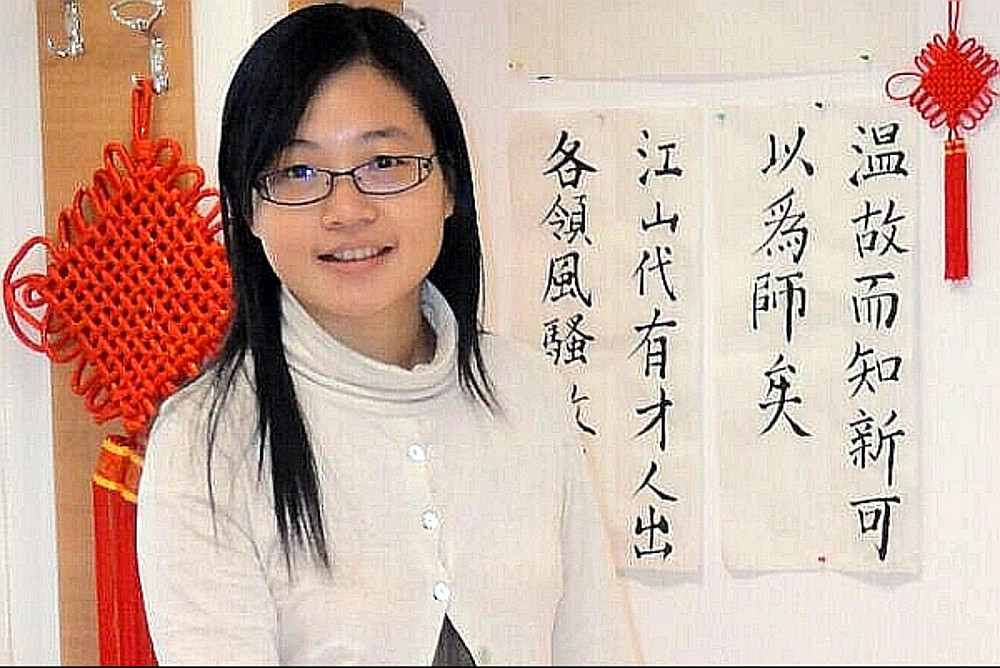 温故而知新可
以爲師矣
江山代有才人出
各領風騷